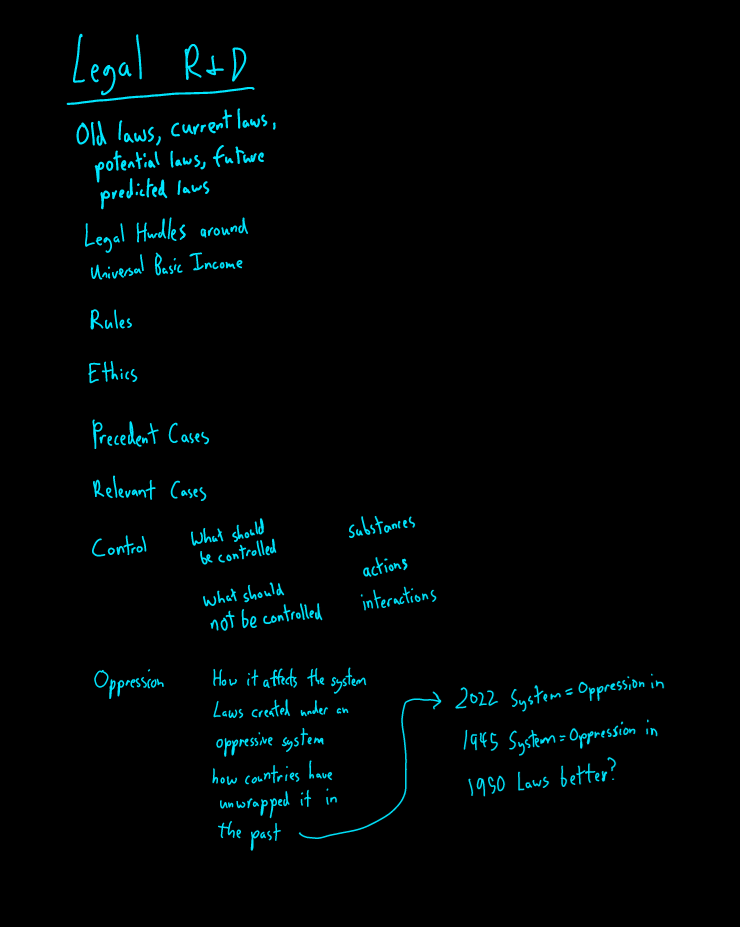 Legal R&D
Old laws, current laws,
potential laws, future
predicted laws
Legal Hurdles around
Universal Basic Income
Rules
Ethics
Precedent Cases
Relevant Cases
Control
What should
be controlled
What should
not be controlled
substances
actions
interactions
Oppression
How it affects the system
Laws created under an
oppressive system
how countries have
unwrapped it in
the past
2022 System = Oppression in
1945 System = Oppression in
1950 Laws better?